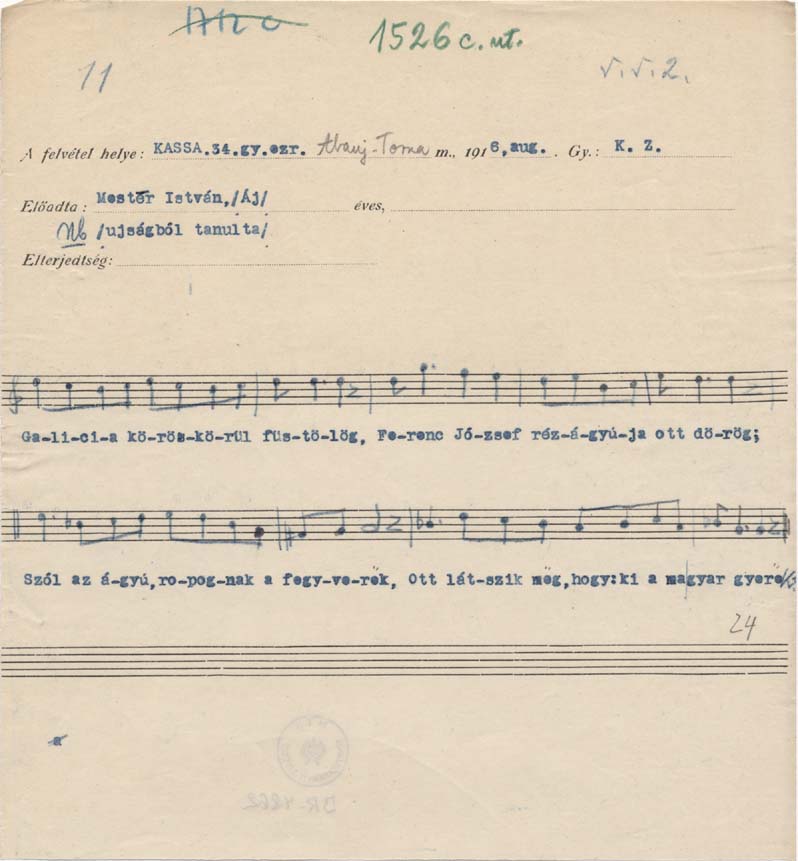 1526 c. ut.
11
V. V. 2.
A felvétel helye: KASSA.34.gy.ezr. Abauj-Torna m., 1916,aug. . Gy.: K. Z.
Előadta: Mestër István,/Áj/ éves,
Nb /ujságból tanulta/
Elterjedtség:
Ga-li-ci-a kö-rös-kö-rül füs-tö-lög, Fe-renc Jó-zsef réz-á-gyú-ja ott dö-rög;
Szól az á-gyú,ro-pog-nak a fegy-ve-rëk, Ott lát-szik mëg,hogy:ki a magyar gyerë/k.
24
a